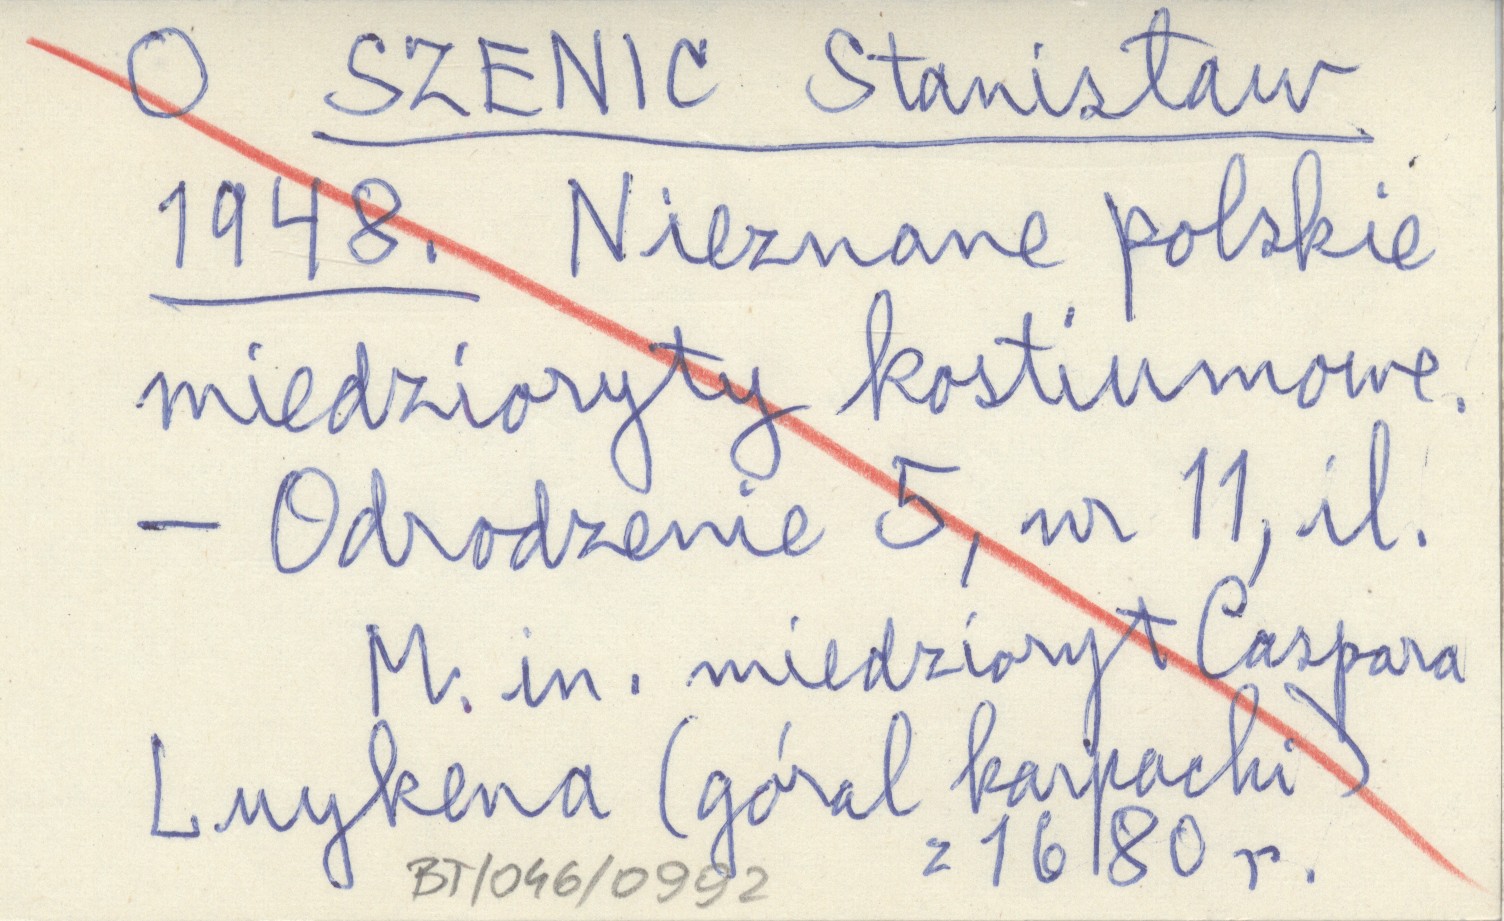 O SZENIC Stanisław
1948. Nieznane polskie
miedzioryty kostiumowe.
— Odrodzenie 5, nr 11, il.
M. in. miedzioryt Caspara
Luykena (góral karpacki)
z 1680 r.
BT/046/0992